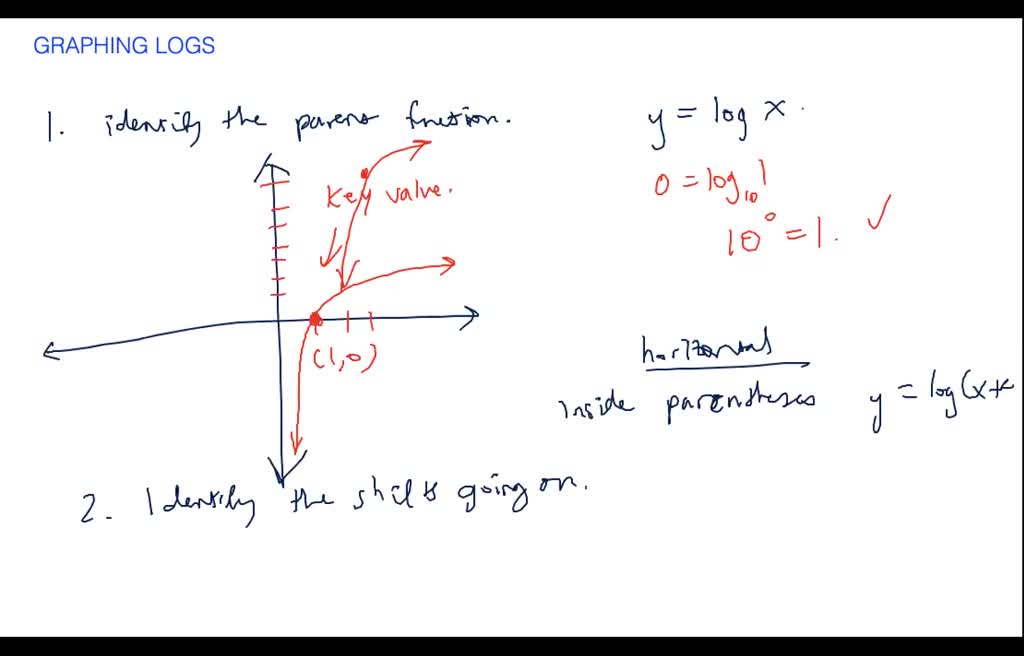 GRAPHING LOGS
1. identify the parent function.
y = log x.
0 = log₁₀1
10⁰ = 1. ✓
Key value.
(1,0)
horizontal
Inside parentheses y = log(x+
2. Identify the shifts going on.